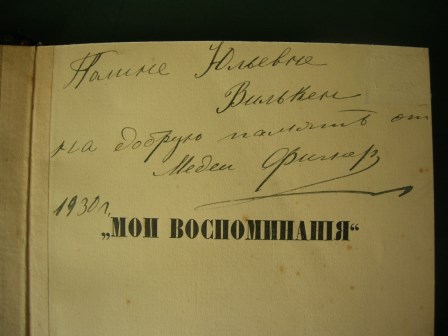 Полине Юльевне
Вилькен
на добрую память от
Медеи Фигнер
1930 г.
„МОИ ВОСПОМИНАНІЯ“